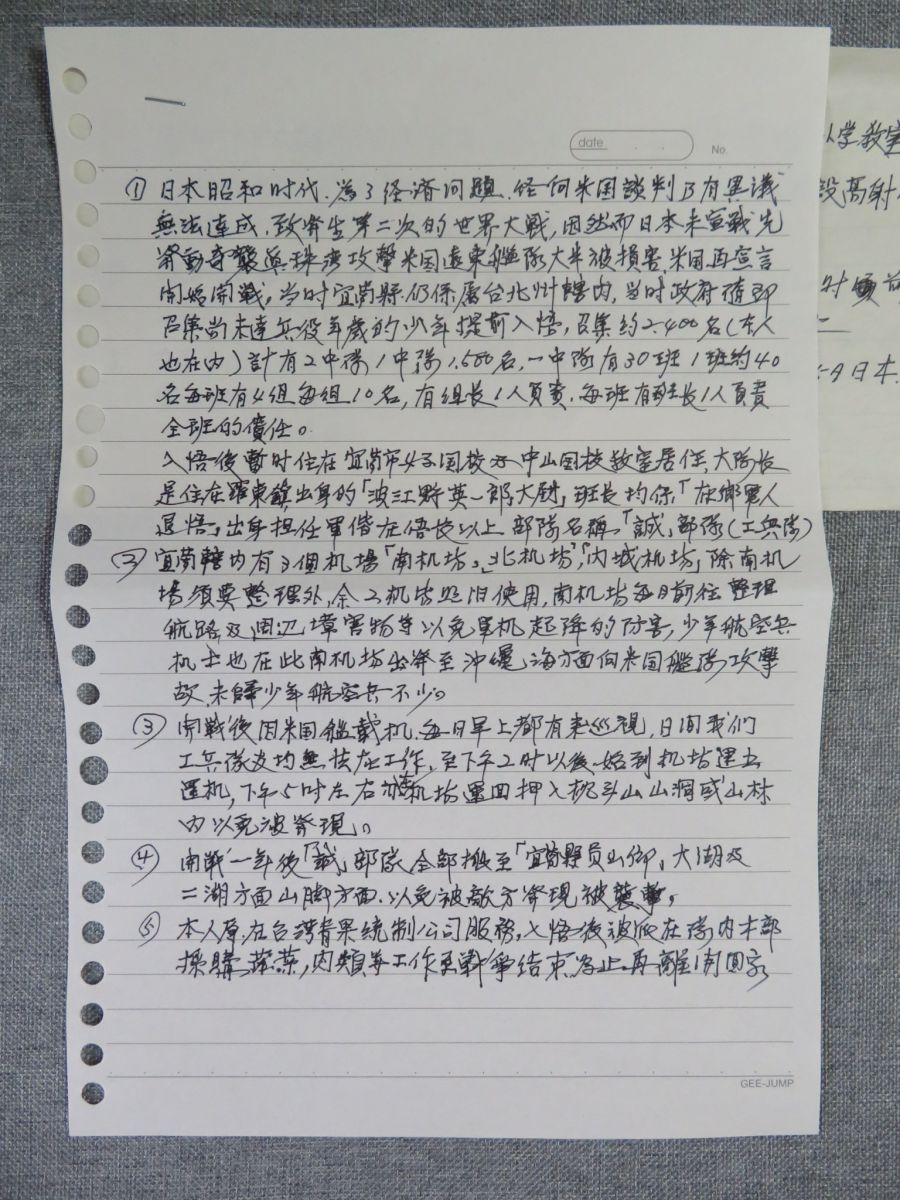 date
No.
① 日本昭和时代.為了経済问題.經何米国談判乃有異議
無法達成,致発生第二次的世界大戦,因然而日本未宣戦先
発動奇襲真珠湾攻擊米国遠東艦隊大半被損害.米国再宣言
開始開戦,当时宜蘭縣仍係屬台北州轄内,当时政府随即
召集尚未達兵役年歲的少年提前入悟,召集約2.400名(本人
也在内)計有2中隊1中隊1.500名,一中隊有30班1班約40
名每班有4組每組10名,有組長1人負責.每班有班長1人負責
全班的責任。
入悟後暫时住在宜蘭市女子国校 中山国校教室居住,大隊長
是住在羅東鎮出身的「波江野英一郎大尉」班長均係「在鄉軍人
退悟」出身担任軍階在伍長以上部隊名稱「誠」部隊(工兵隊)
② 宜蘭轄内有3個机場「南机场」「北机场」「内城机场」除南机
場須要整理外,余2机皆照旧使用,南机场每日前往整理
航路及周辺障害物等以免軍机起降的防害,少年航空兵
机士也在此南机场出発至沖縄海方面向米国艦隊攻擊
故.未歸少年航空兵不少。
③ 開戦後因米国艦載机.每日早上都有来巡視,日间我们
工兵隊友均無法在工作.至下午2时以後始到机场運出
運机,下午5时左右 机场運回押入枕头山山洞或山林
内以免被発現。
④ 開戦一年後「誠」部隊全部搬至「宜蘭縣员山鄉」大湖及
二湖方面山脚方面.以免被敵方発現被襲擊。
⑤ 本人原在台湾青果統制公司服務,入悟後被派在隊内本部
採購蔬菜,肉類等工作至戰爭結束為止.再離開回家
GEE-JUMP
小学教室
設高射
时
日本.